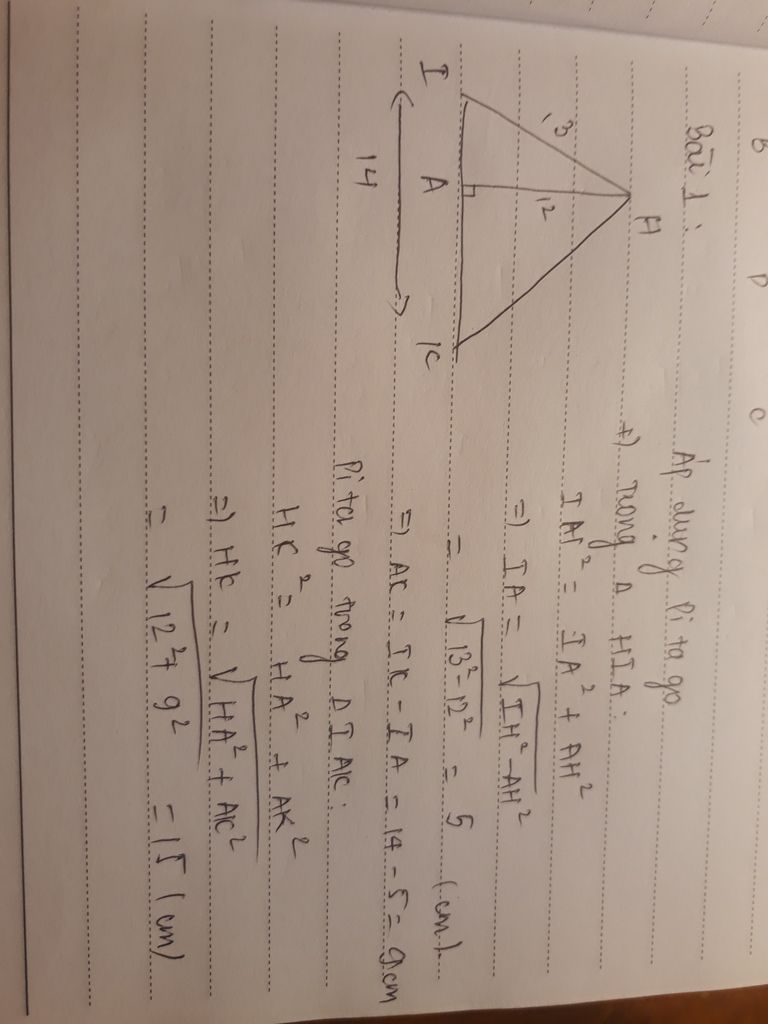 B P C
Bài 1:
H
13
12
I A K
14
Áp dụng Pi ta go
+) Trong Δ HIA:
IH² = IA² + AH²
=) IA = √IH² - AH²
= √13² - 12² = 5 (cm).
=) AK = IK - IA = 14 - 5 = 9cm
Pi ta go trong Δ IAK:
HK² = HA² + AK²
=) HK = √HA² + AK²
= √12² + 9² = 15 (cm)